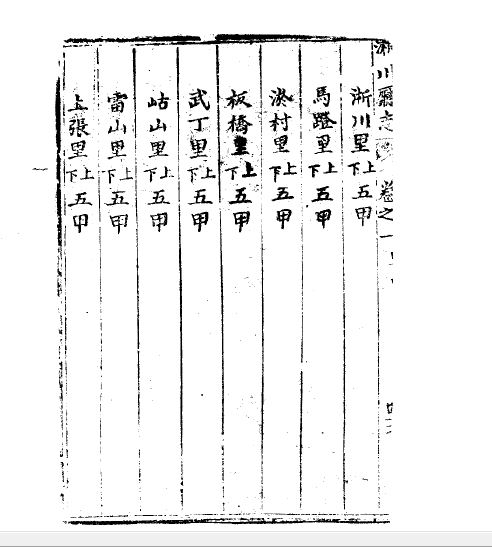 川 志 卷之一
淅川里上下五甲
馬蹬里上下五甲
村里上下五甲
板橋里上下五甲
武丁里上下五甲
岵山里上下五甲
雷山里上下五甲
上張里上下五甲